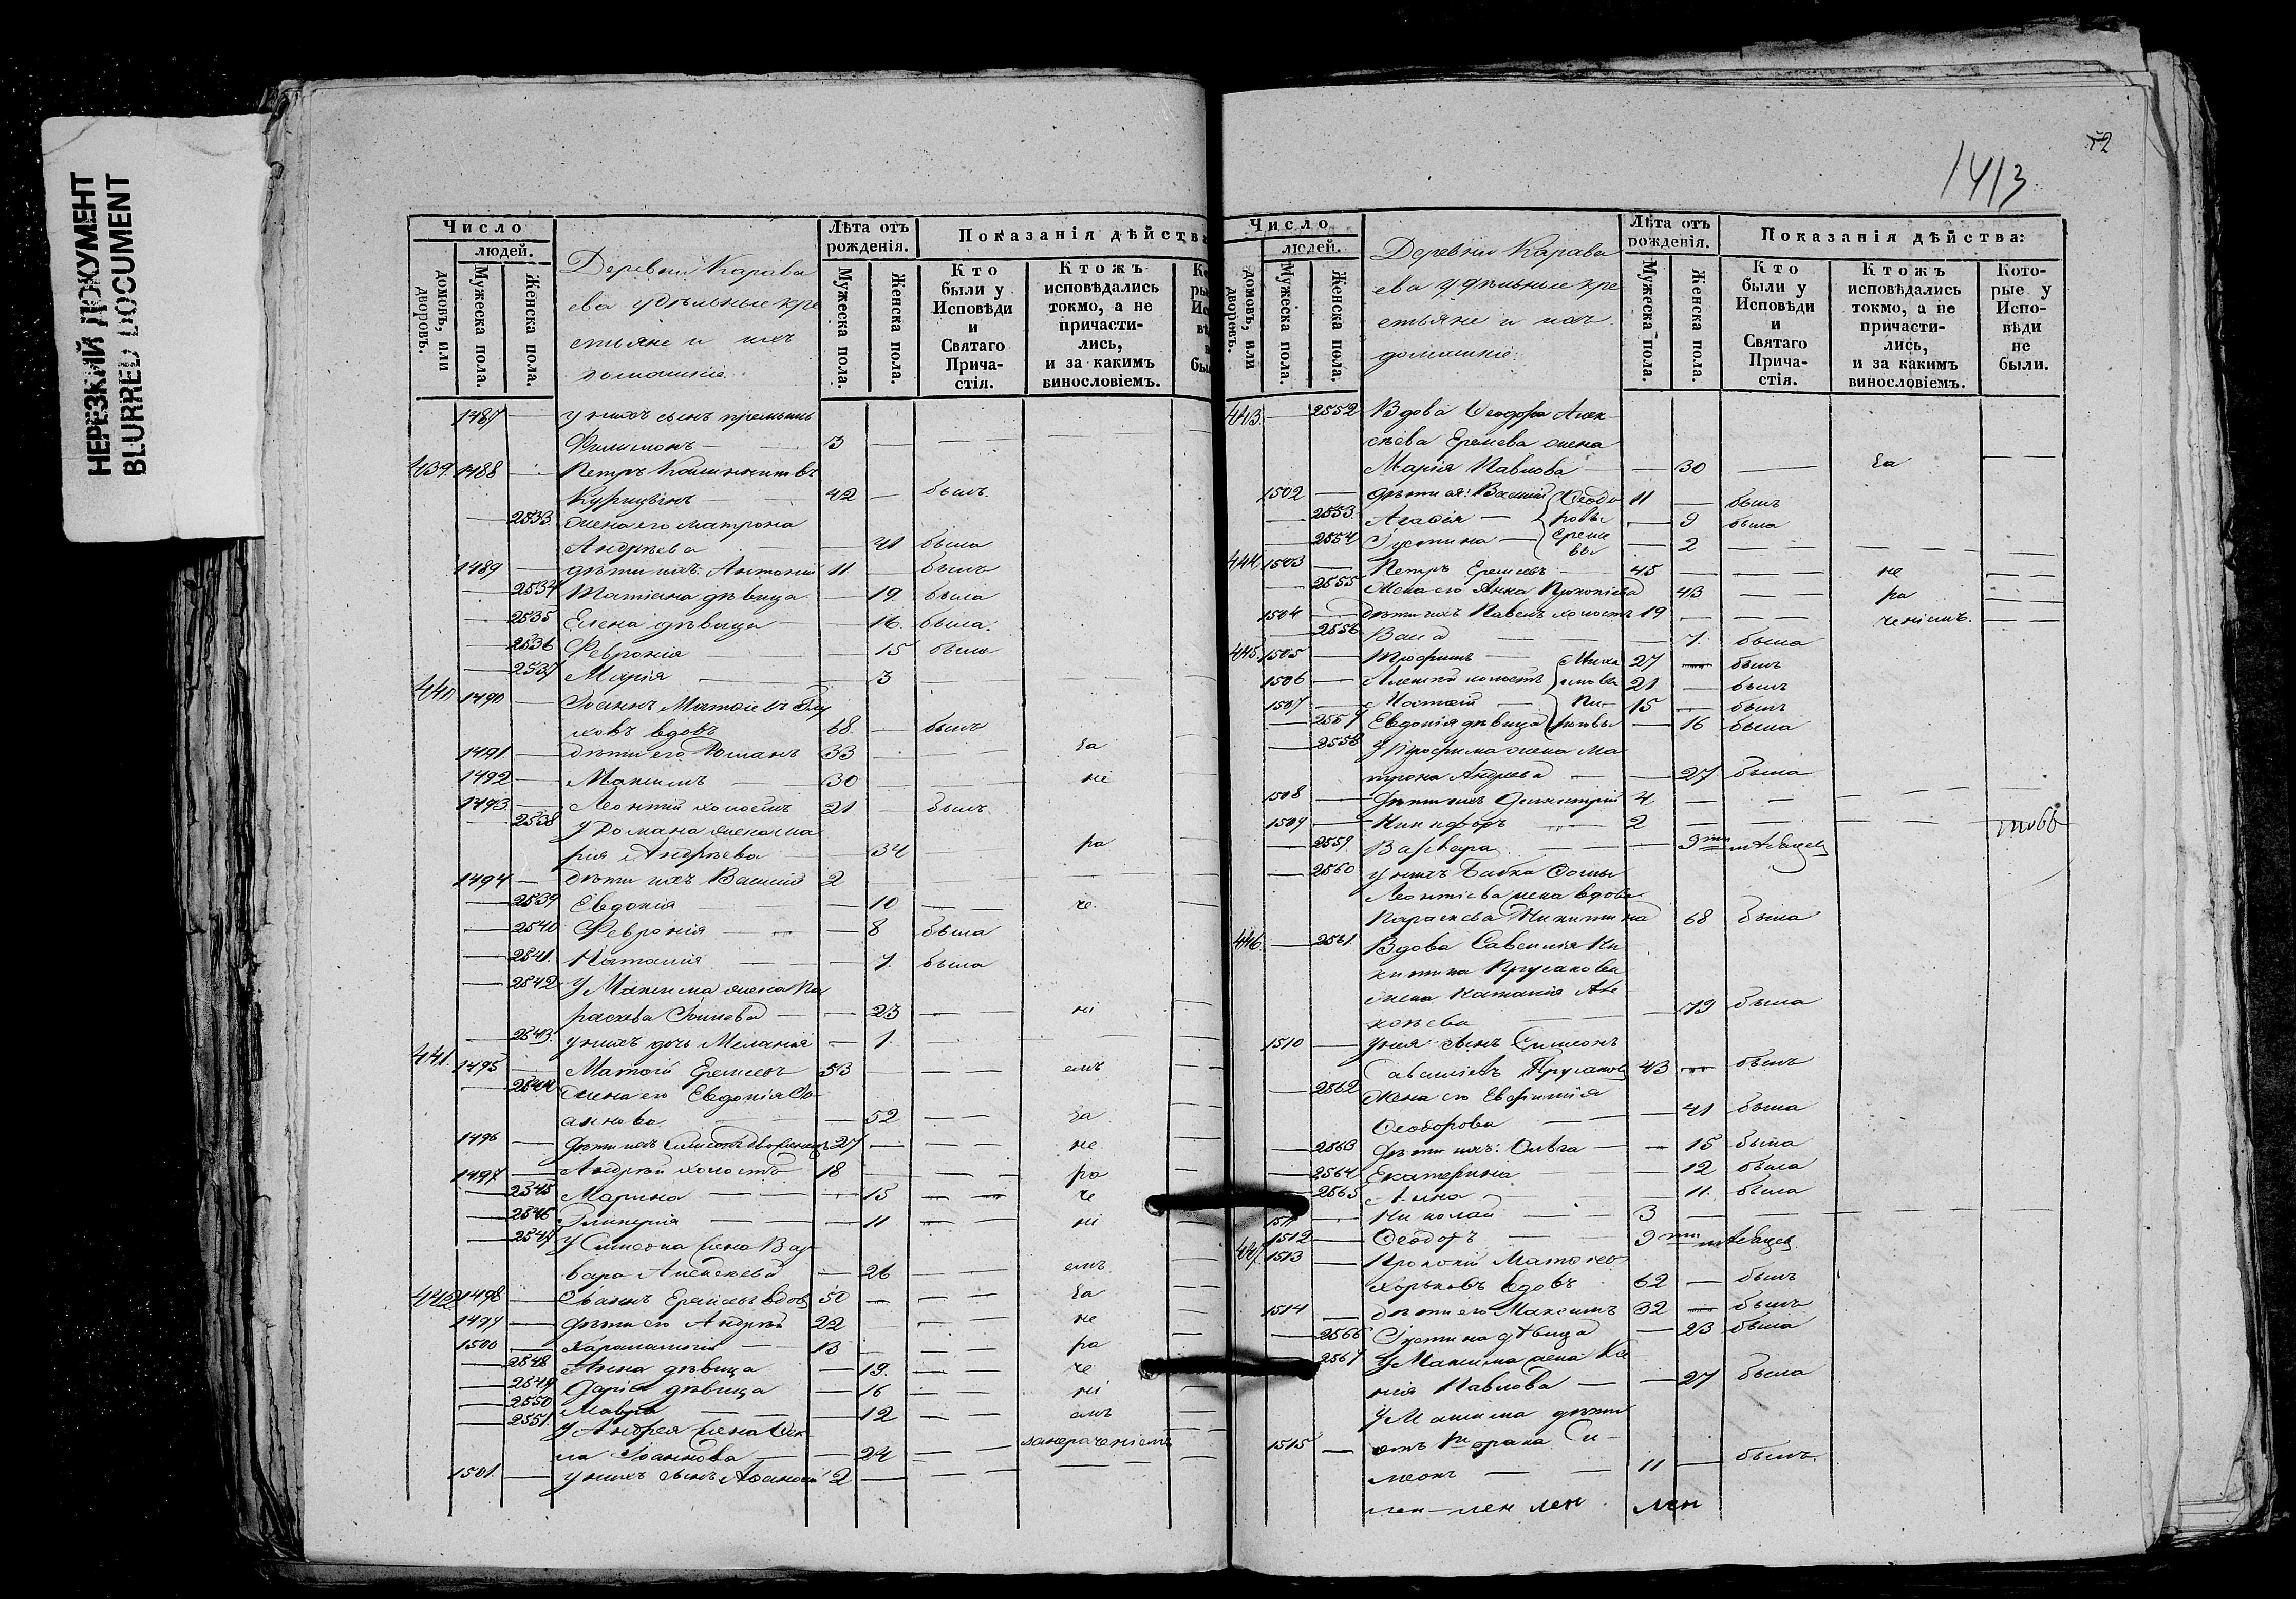 НЕРЕЗКИЙ ДОКУМЕНТ
BLURRED DOCUMENT
Число
людей.
домовъ, или дворовъ.
Мужеска пола.
Женска пола.
Деревни Карава
ева удѣльные кре
стьяне и ихъ
домашніе.
Лѣта отъ рожденія.
Мужеска пола.
Женска пола.
Показанія дѣйства
Кто были у Исповѣди и Святаго Прича- стія.
Ктожъ исповѣдались токмо, а не причасти- лись, и за какимъ винословіемъ.
1487 — у нихъ сынъ
Филимонъ — 3 —
439 1488 — Петръ
42 — былъ
2533 жена его Матрона
Андрѣева — 41 была
1489 — дѣти ихъ: Антоній 11 — былъ
2534 Татіана дѣвица — 19 была
2535 Елена дѣвица — 16 была
2536 Февронія — 15 была
2537 Марія — 3 —
440 1490 — Іоаннъ
ховъ вдовъ 68 — былъ
1491 — дѣти его Романъ 33 — за
1492 — Максимъ — 30 — не
1493 — Леонтій холостъ 21 былъ
2538 у Романа жена Ма
рія Андрѣева — 34 — ра
1494 — дѣти ихъ Василій 2 —
2539 Евдокія — 10 — че
2540 Февронія — 8 была
2541 Наталія — 7 была
2542 У Максима жена Па
раскева — 23 — ні
2543 у нихъ дочь Меланія — 1 —
441 1495 — Матѳій Еремѣевъ 53 — емъ
2544 Жена его Евдокія Іо
аннова — 52 — за
1496 — дѣти ихъ 27 — не
1497 — Андрей холостъ 18 — ра
2545 Марина — 15 — че
2546 Гликерія — 11 — ні
2547 У Симеона жена Вар
вара Алексѣева — 26 — емъ
442 1498 — Іоаннъ Еремѣевъ вдовъ 50 — за
1499 — дѣти его Андрей 22 — не
1500 — Харалампій — 13 — ра
2548 Анна дѣвица — 19 — че
2549 Дарія дѣвица — 16 — ні
2550 Мавра — 12 — емъ
2551 У Андрея жена Ѳек
ла Іоаннова — 24 — занераченіемъ
1501 — у нихъ сынъ Аѳанасій 2 —
52
1413
Число
людей.
домовъ, или дворовъ.
Мужеска пола.
Женска пола.
Деревни Карава
ева удѣльные кре
стьяне и ихъ
домашніе.
Лѣта отъ рожденія.
Мужеска пола.
Женска пола.
Показанія дѣйства:
Кто были у Исповѣди и Святаго Прича- стія.
Ктожъ исповѣдались токмо, а не причасти- лись, и за какимъ винословіемъ.
Кото- рые у Испо- вѣди не были.
443 — 2552 Вдова Ѳеодора Алек
сѣева Еремѣева жена
Марія Павлова — 30 — за
1502 — дѣти ея: Василій Ѳеодо 11 — былъ
2553 Агафія — ровы — 9 была
2554 Іустина — Ереме вы — 2 —
444 1503 — Петръ Еремѣевъ — 45 — не
2555 Жена его Анна Прокопіева 43 — ра
1504 — дѣти ихъ Павелъ холостъ 19 — ченіемъ
2556 — 7 была
445 1505 — Трофимъ — Миха 27 — былъ
1506 — Алексѣй холостъ иловы 21 — былъ
1507 — Матѳій — 15 — былъ
2557 Евдокія дѣвица — 16 была
2558 У Трофима жена Ма
трона Андреева — 27 была
1508 — дѣти ихъ Димитрій 4 —
1509 — Никифоръ — 2 —
2559 Варвара — 9
2560 у нихъ бабка Ѳомы
Леонтіева жена вдова
Параскева Никитина 68 была
446 — 2561 Вдова Савелія Ни
китина Прусакова
жена Наталія
— 79 была
1510 — у нея сынъ Симеонъ
Савеліевъ Прусаковъ 43 — былъ
2562 Жена его Евфимія
Ѳеодорова — 41 была
2563 Дѣти ихъ: Ольга — 15 была
2564 Екатерина — 12 была
2565 Анна — 11 была
1511 — Николай — 3 —
1512 — Ѳеодоръ — 9
447 1513 — Прокопій
Хорьковъ вдовъ 62 — былъ
1514 — дѣти его Максимъ 32 — былъ
2566 Іустина дѣвица — 23 была
2567 У Максима жена Ксе
нія Павлова — 27 была
У Максима дѣти
1515 — отъ 1го брака Си-
меонъ — 11 — былъ